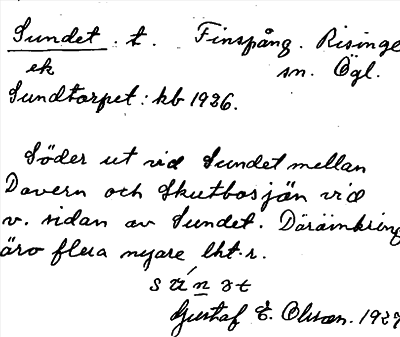 Sundet. t. Finspång. Risinge
ek sn. Ögl.
Sundtorpet: kb 1926.
Söder ut vid Sundet mellan
Dovern och Skutbosjön vid
v. sidan av Sundet. Däromkring
äro flera nyare lht.r.
Gustaf E. Olsson. 1927